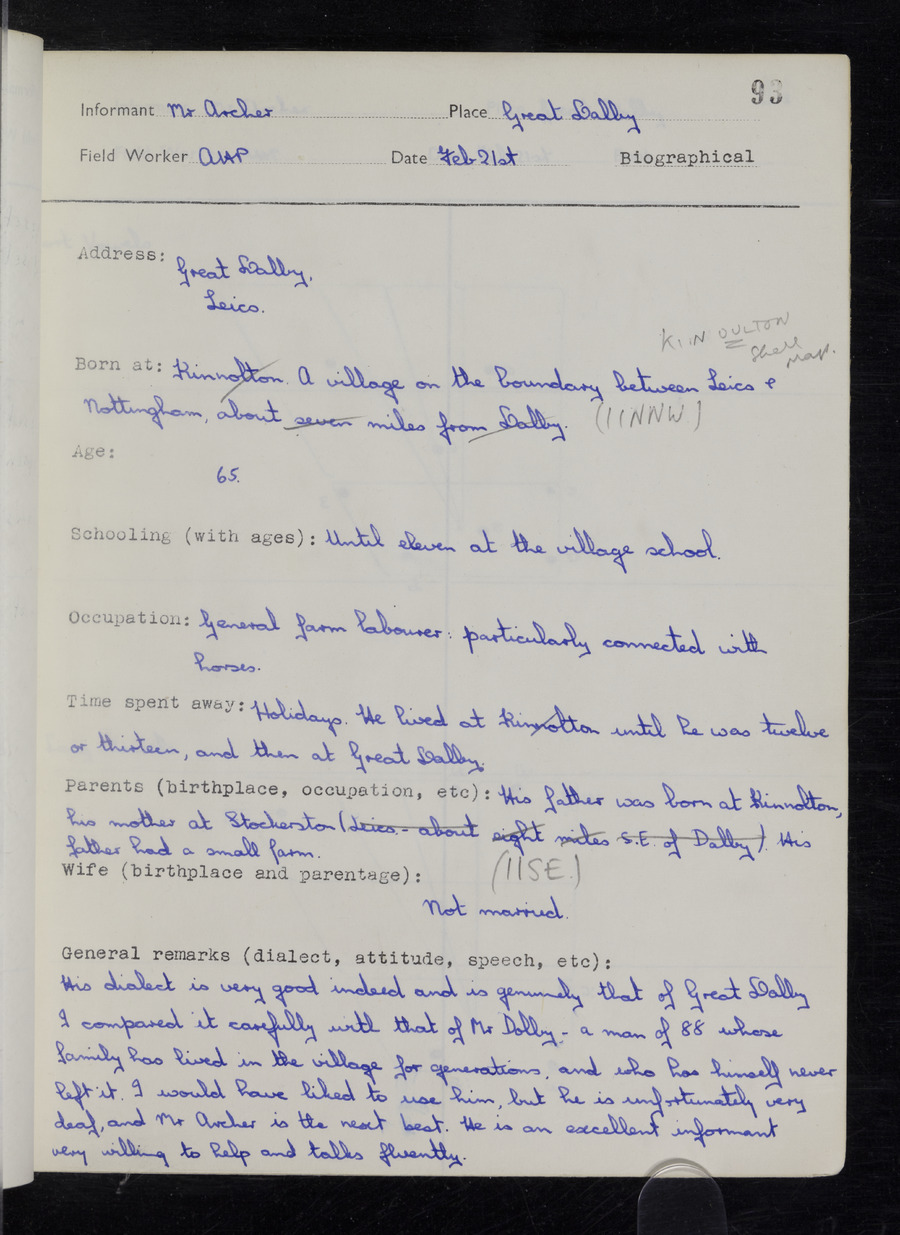 93
Informant Mr Archer Place Great Dalby
Field Worker AWP Date Feb 21st Biographical
Address:
Great Dalby,
Leics.
KIINOULTON
Shell
Map.
Born at: Kinnolton. A village on the boundary between Leics &
Nottingham, about seven miles from Dalby. (11NNW)
Age:
65.
Schooling (with ages): Until eleven at the village school.
Occupation: General farm labourer: particularly connected with
horses.
Time spent away: Holidays. He lived at Kinnolton until he was twelve
or thirteen, and then at Great Dalby.
Parents (birthplace, occupation, etc): His father was born at Kinnolton,
his mother at Stockerston (Leics. - about eight miles S.E. of Dalby). His
father had a small farm.
(11SE.)
Wife (birthplace and parentage):
Not married.
General remarks (dialect, attitude, speech, etc):
His dialect is very good indeed and is genuinely that of Great Dalby
I compared it carefully with that of Mr Dolby - a man of 88 whose
family has lived in the village for generations, and who has himself never
left it. I would have liked to use him, but he is unfortunately very
deaf, and Mr Archer is the next best. He is an excellent informant
very willing to help and talks fluently.